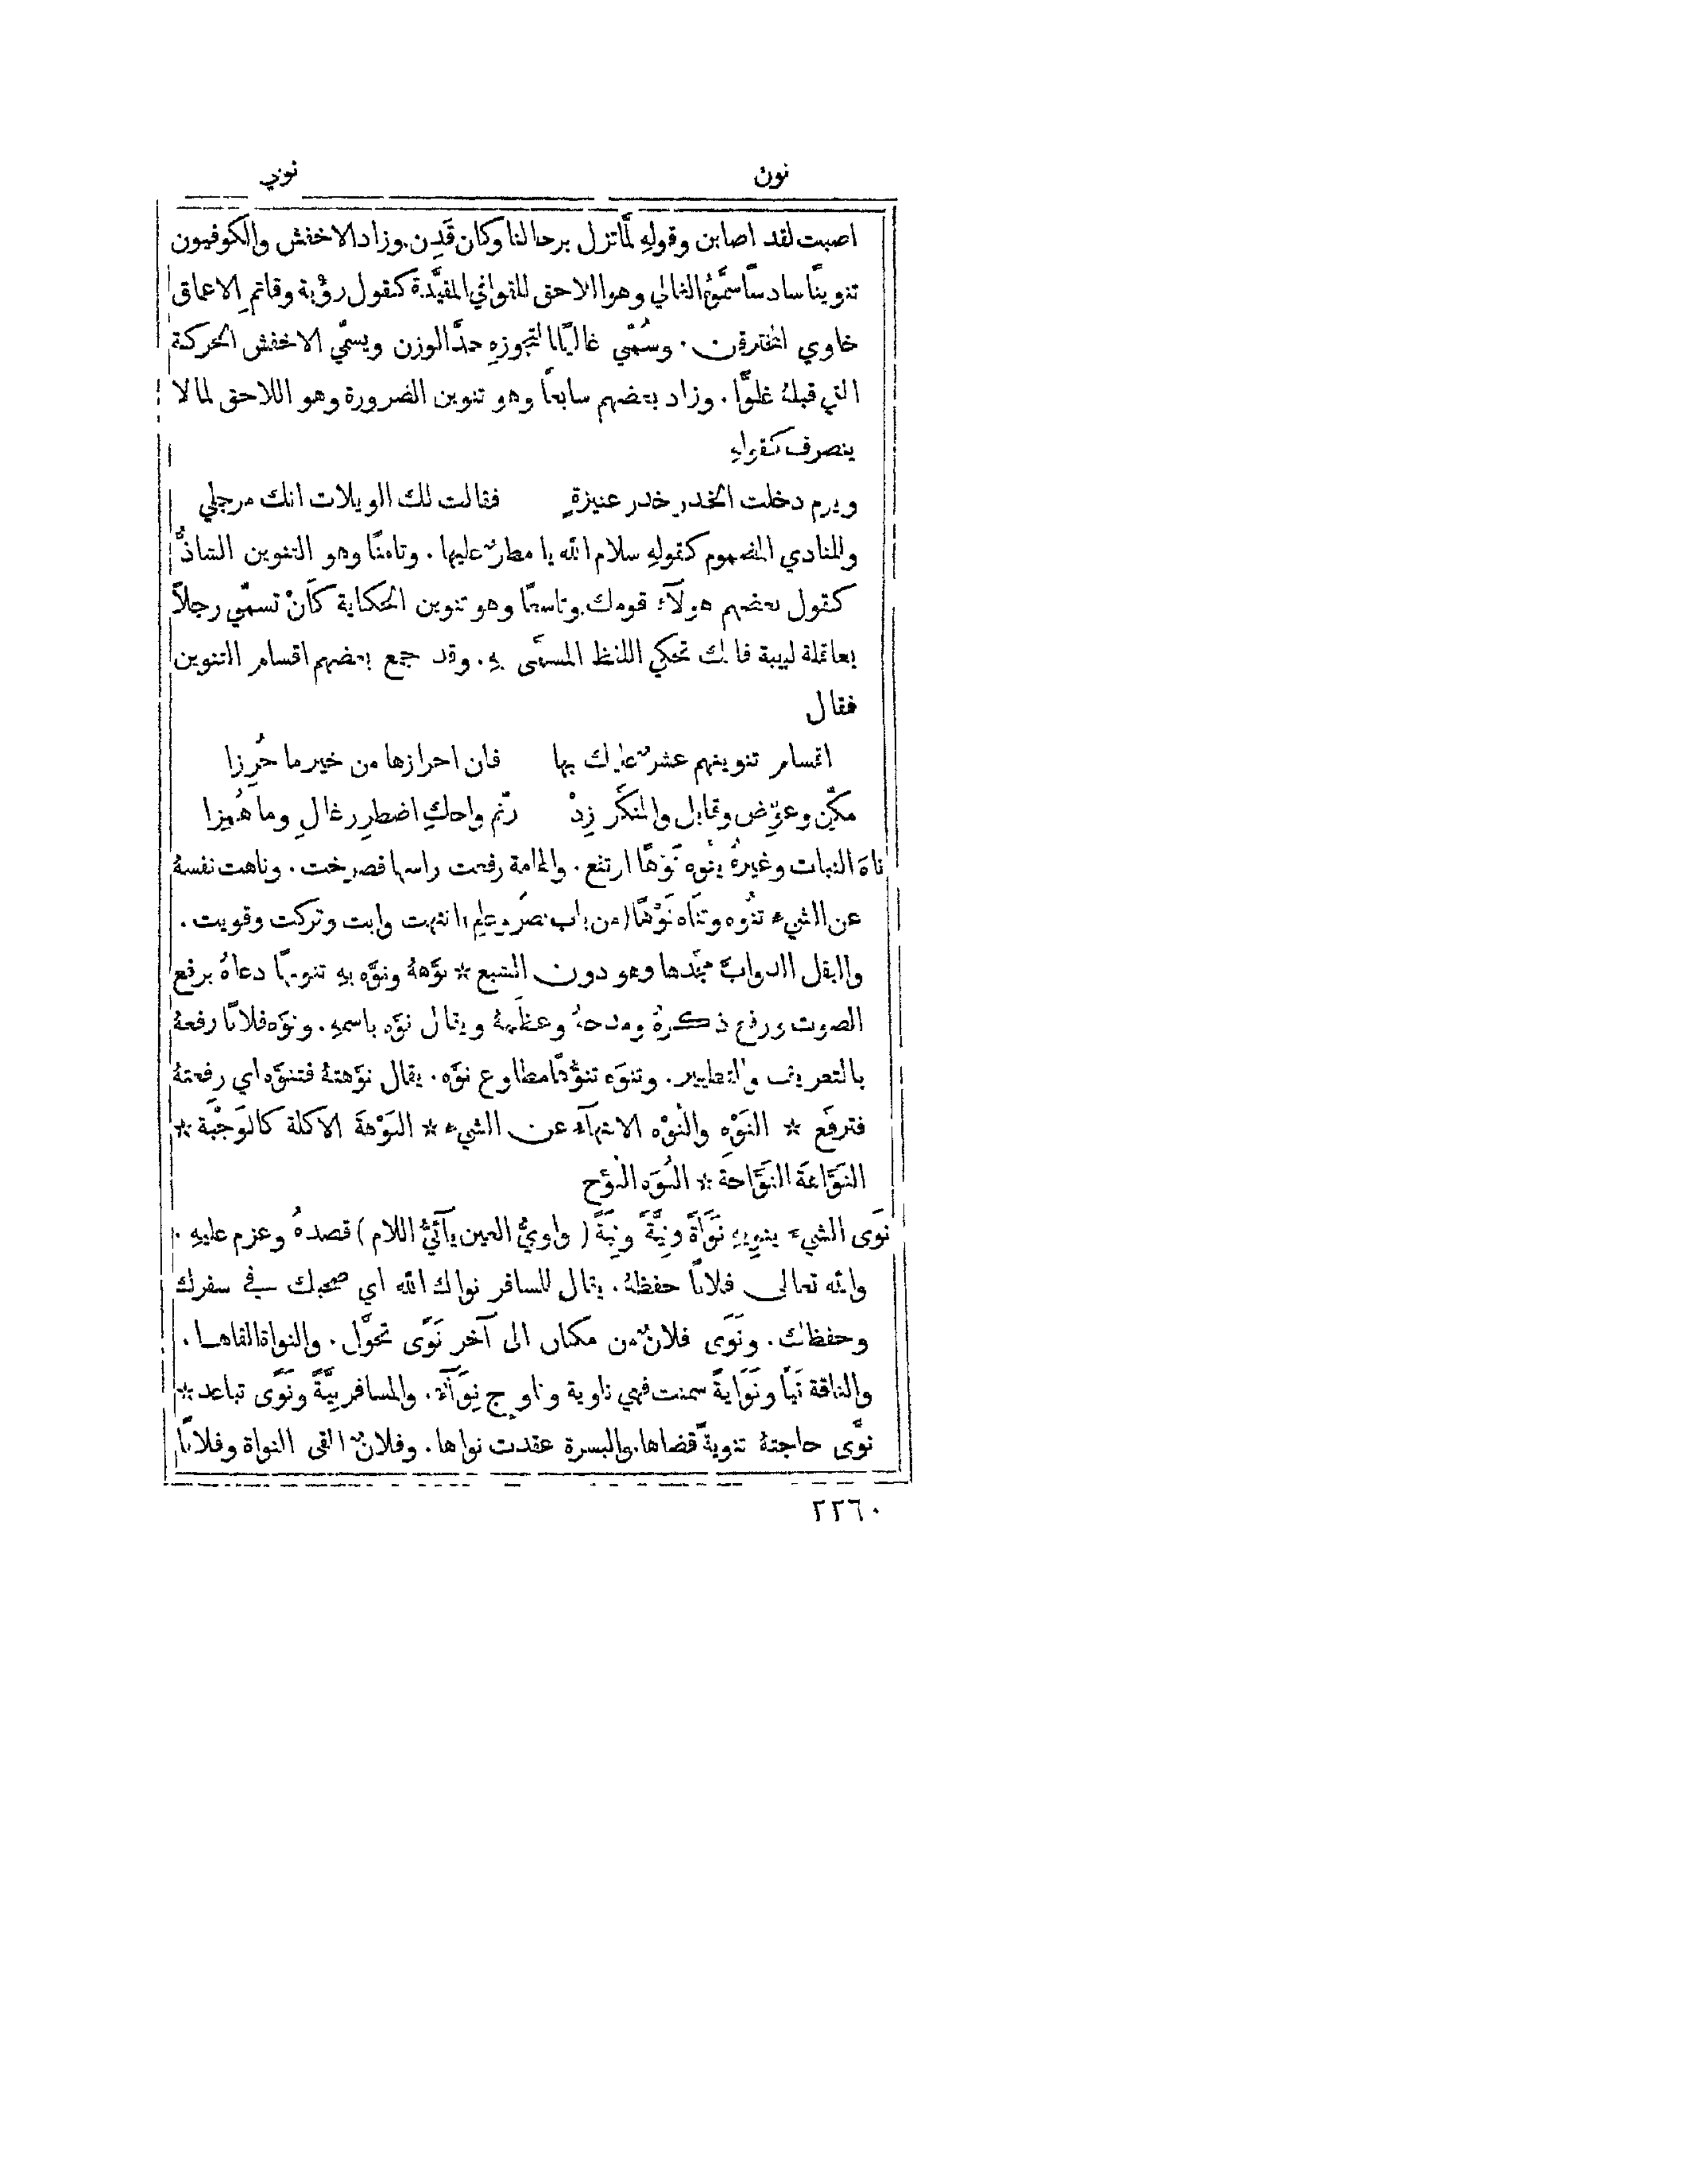 نون نوي
اصبت لقد اصابن وقولهِ لمَّا تزل برحالنا وكان قَدِن. وزاد الاخفش والكوفيون
تنوينًا سادسًا سمَّوهُ الغالي وهو اللاحق للقوافي المقيَّدة كقول رؤبة وقاتمِ الاعماق
خاوي المخترقن. وسُمّي غاليًا لتجوزهِ حدَّ الوزن ويسمّي الاخفش الحركة
التي قبلهُ غلوًّا. وزاد بعضهم سابعًا وهو تنوين الضرورة وهو اللاحق لما لا
ينصرف كقولهِ
ويوم دخلت الخدر خدر عنيزةٍ فقالت لك الويلات انك مرجلي
والمنادي المضموم كقولهِ سلام الله يا مطرٌ عليها. وثامنًا وهو التنوين الشاذُّ
كقول بعضهم هولآءٍ قومك. وتاسعًا وهو تنوين الحكاية كأَنْ تسمّي رجلاً
بعاقلة لبيبة فانك تحكي اللفظ المسمَّى بهِ. وقد جمع بعضهم اقسام التنوين
فقال
اقسام تنوينهم عشرٌ عليك بها فان احرازها من خير ما حُرِزا
مكّن وعوّض وقابل والمنكَّر زِدْ رنّم واحكِ اضطرر غالِ وما هُمِزا
ناهَ النبات وغيرهُ ينُوه نَوْهًا ارتفع. والهامة رفعت راسها فصرخت. وناهت نفسهُ
عن الشيء تنُوه وتنَاه نَوْهًا (من باب نصَر وعلِم) انتهت وابت وتركت وقويت.
والبقل الدوابَّ مجَّدها وهو دون الشبع * نوَّههُ ونوَّه بهِ تنويهًا دعاهُ برفع
الصوت ورفع ذكرهُ ومدحهُ وعظَّمهُ ويقال نوَّه باسمهِ. ونوَّه فلانًا رفعهُ
بالتعريف والتطيير. وتنوَّه تنوُّهًا مطاوع نوَّه. يقال نوَّهتهُ فتنوَّه اي رفعتهُ
فترفَّع * النَوْه والنُوْه الانتهآءُ عن الشيء * النَوْهَة الاكلة كالوَجْبَة *
النَوَّاهَة النَوَّاحة * النُوَّه النُوَّح
نَوَى الشيءَ ينوِيهِ نَوَاةً ونِيَّةً ونِيَةً (واويُّ العين يآئيُّ اللام) قصدهُ وعزم عليهِ.
والله تعالى فلانًا حفظهُ. يقال للمسافر نواك الله اي صحبك في سفرك
وحفظك. ونَوَى فلانٌ من مكان الى آخر نَوًى تحوَّل. والنواةَ القاها.
والناقة نَيًّا ونَوَايةً سمنت فهي ناوية وناوٍ ج نِوَآءٌ. والمسافر نِيَّةً ونَوًى تباعد *
نوَّى حاجتهُ تنويةً قضاها. والبسرة عقدت نواها. وفلانٌ القى النواة وفلانًا
٢٢٦٠